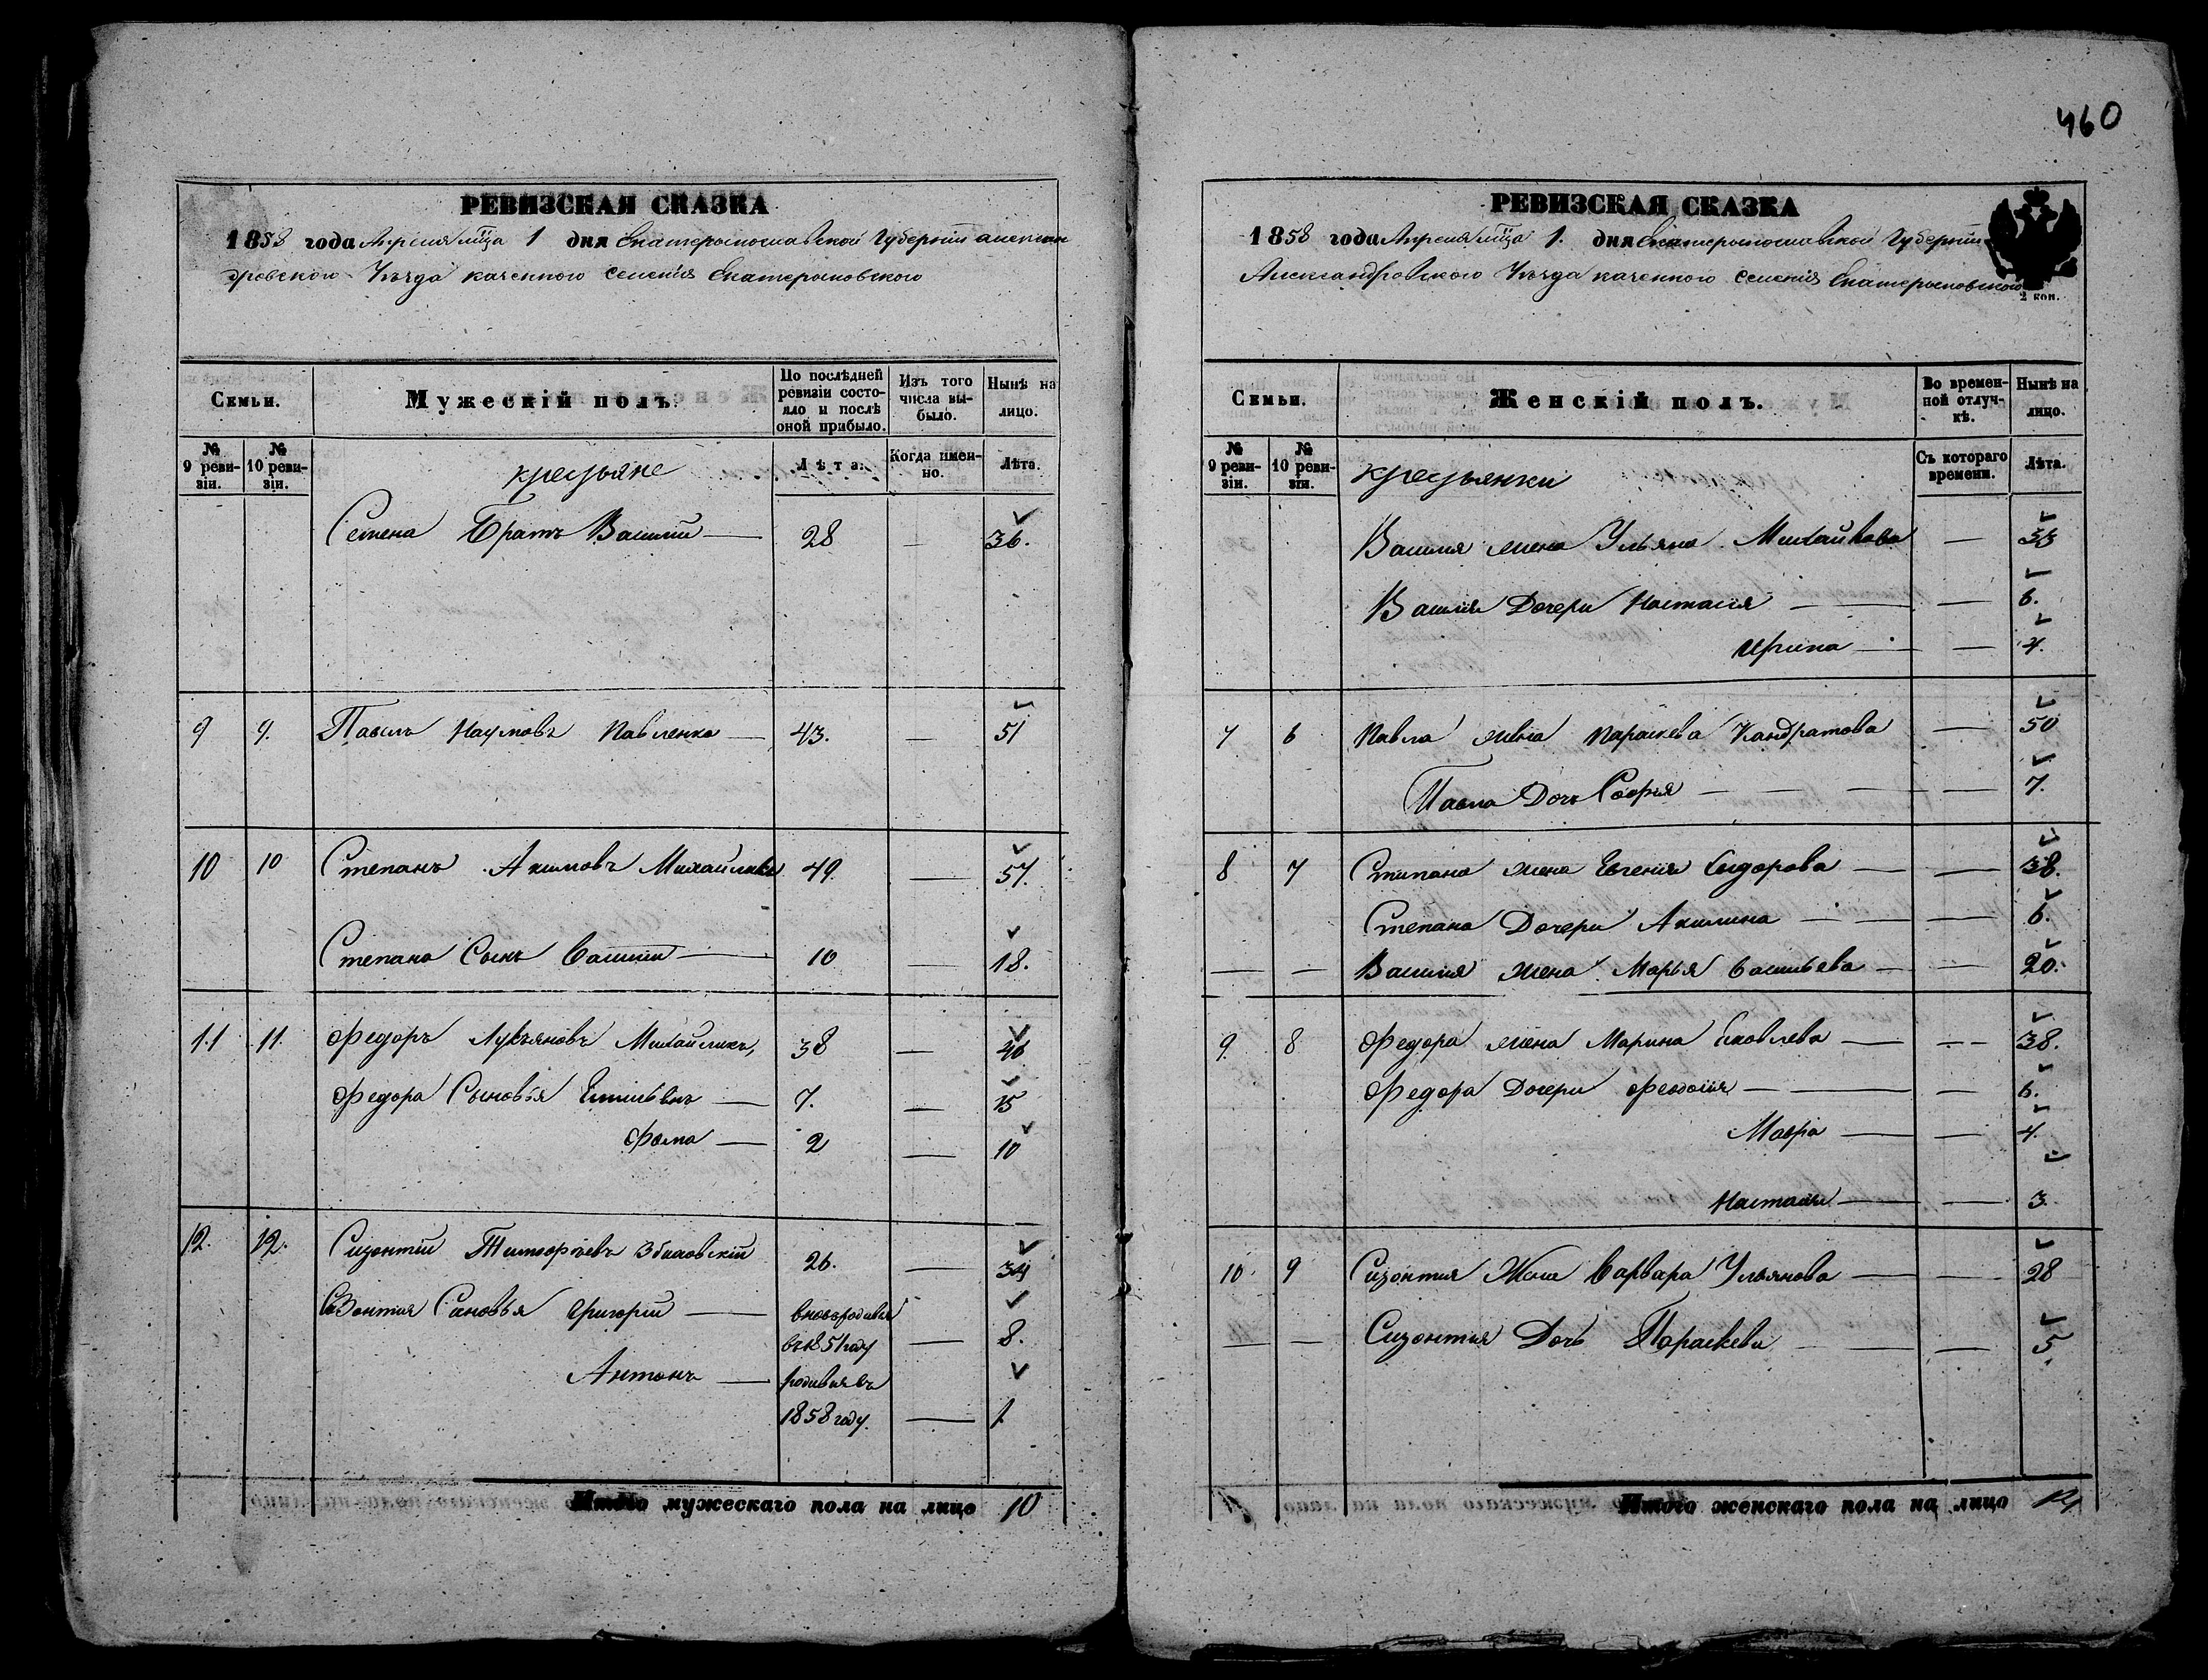 460
РЕВИЗСКАЯ СКАЗКА
1858 года Апреля м͠ца 1 дня Екатеринославской Губернiи Алексан
дровского Уѣзда казенного селенiя Екатериновского
Семьи.
Мужескiй полъ.
По послѣдней ревизiи состояло и послѣ оной прибыло.
Изъ того числа выбыло.
Нынѣ на лицо.
№ 9 ревизiи.
№ 10 ревизiи.
крестьяне
Лѣта.
Когда именно.
Лѣта.
Семена Братъ Василiй — 28 — 36.
9 9. Павелъ Наумовъ Павленко — 43. — 51
10 10 Степанъ Акимовъ Михайликъ 49. — 57.
Степана Сынъ Василiй — 10 — 18.
11 11. Федоръ Лукьяновъ Михайликъ, 38 — 46.
Федора Сыновья Емельянъ — 7. — 15
Фома — 2 — 10
12. 12. Сизонтiй Тимофѣевъ Збицовскiй 26. — 34
Созонтия Сыновья Григорiй — вновьродився
въ 1851 году — 8.
Антонъ — родився въ
1858 году. — 1.
Итого мужескаго пола на лицо 10
РЕВИЗСКАЯ СКАЗКА
1858 года Апреля м͠ца 1. дня Екатеринославской Губернiи
Александровского Уѣзда казенного селенiя Екатериновского
2 коп.
Семьи.
Женскiй полъ.
Во временной отлучкѣ.
Нынѣ на лицо.
№ 9 ревизiи.
№ 10 ревизiи.
крестьянки
Съ котораго времени.
Лѣта.
Василия жена Ульяна Михайлова — 33
Василiя Дочери Настасiя — — 6.
Ирина — — 4.
7 6 Павла жена Параскева Кандратова — 50
Павла Дочь Софья — — 7.
8 7 Степана жена Евгенiя Сидорова — — 38.
Степана Дочери Акилина — — 6.
— — Василия жена Марья Васильева — — 20.
9. 8 Федора жена Марина Яковлева — — 38.
Федора Дочери Феодосiя — — 6.
Мавра — — 4.
Настасiя — — 3.
10 9 Сизонтия Жена Варвара Ульянова — — 28
— — Сизонтия Дочь Параскева — — 5.
Итого женскаго пола на лицо 14